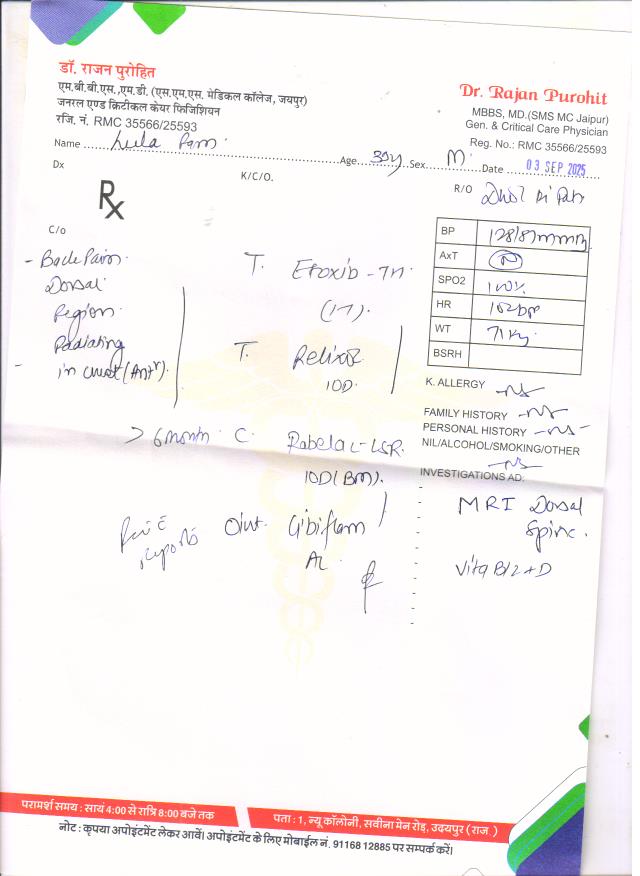 डॉ. राजन पुरोहित
एम.बी.बी.एस.,एम.डी. (एस.एम.एस. मेडिकल कॉलेज, जयपुर)
जनरल एण्ड क्रिटीकल केयर फिजिशियन
रजि. नं. RMC 35566/25593
Dr. Rajan Purohit
MBBS, MD.(SMS MC Jaipur)
Gen. & Critical Care Physician
Reg. No.: RMC 35566/25593
Name ... Ram Age 30y Sex M Date 03 SEP 2025
Dx
K/C/O.
R/O
Rx
C/o
- Back Pain
Dorsal
Region
Radiating
in chest (Antr)
> 6 month
reports
T. Etoxib - Th
T. Relixof
10D
C. Rabela L-LSR
10D (BM)
Oint. Gibiflam
BP 128/87 mmHg
AxT N
SPO2 100%
HR 102bp
WT 71kg
BSRH
K. ALLERGY - NS
FAMILY HISTORY - NS -
PERSONAL HISTORY - NS -
NIL/ALCOHOL/SMOKING/OTHER
- NS
INVESTIGATIONS AD:
MRI Dorsal
Spine.
Vit B12 + D
परामर्श समय : सायं 4:00 से रात्रि 8:00 बजे तक
पता : 1, न्यू कॉलोनी, सवीना मेन रोड़, उदयपुर ( राज. )
नोट : कृपया अपोइंटमेंट लेकर आवें। अपोइंटमेंट के लिए मोबाईल नं. 91168 12885 पर सम्पर्क करें।